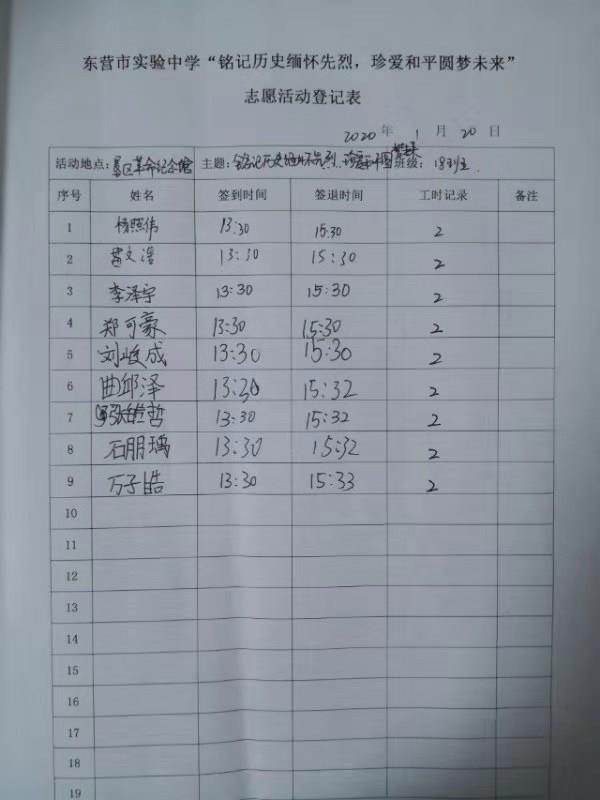 东营市实验中学“铭记历史缅怀先烈，珍爱和平圆梦未来”
志愿活动登记表
2020年 1月 20日
活动地点：垦区革命纪念馆 主题：铭记历史缅怀先烈，珍爱和平圆梦未来 班级：18班
序号 姓名 签到时间 签退时间 工时记录 备注
1 杨照伟 13:30 15:30 2
2 文浩 13:30 15:30 2
3 李泽宇 13:30 15:30 2
4 郑可豪 13:30 15:30 2
5 刘峻成 13:30 15:30 2
6 曲邱泽 13:30 15:32 2
7 哲 13:30 15:32 2
8 石朋瑀 13:30 15:32 2
9 万子皓 13:30 15:33 2
10
11
12
13
14
15
16
17
18
19